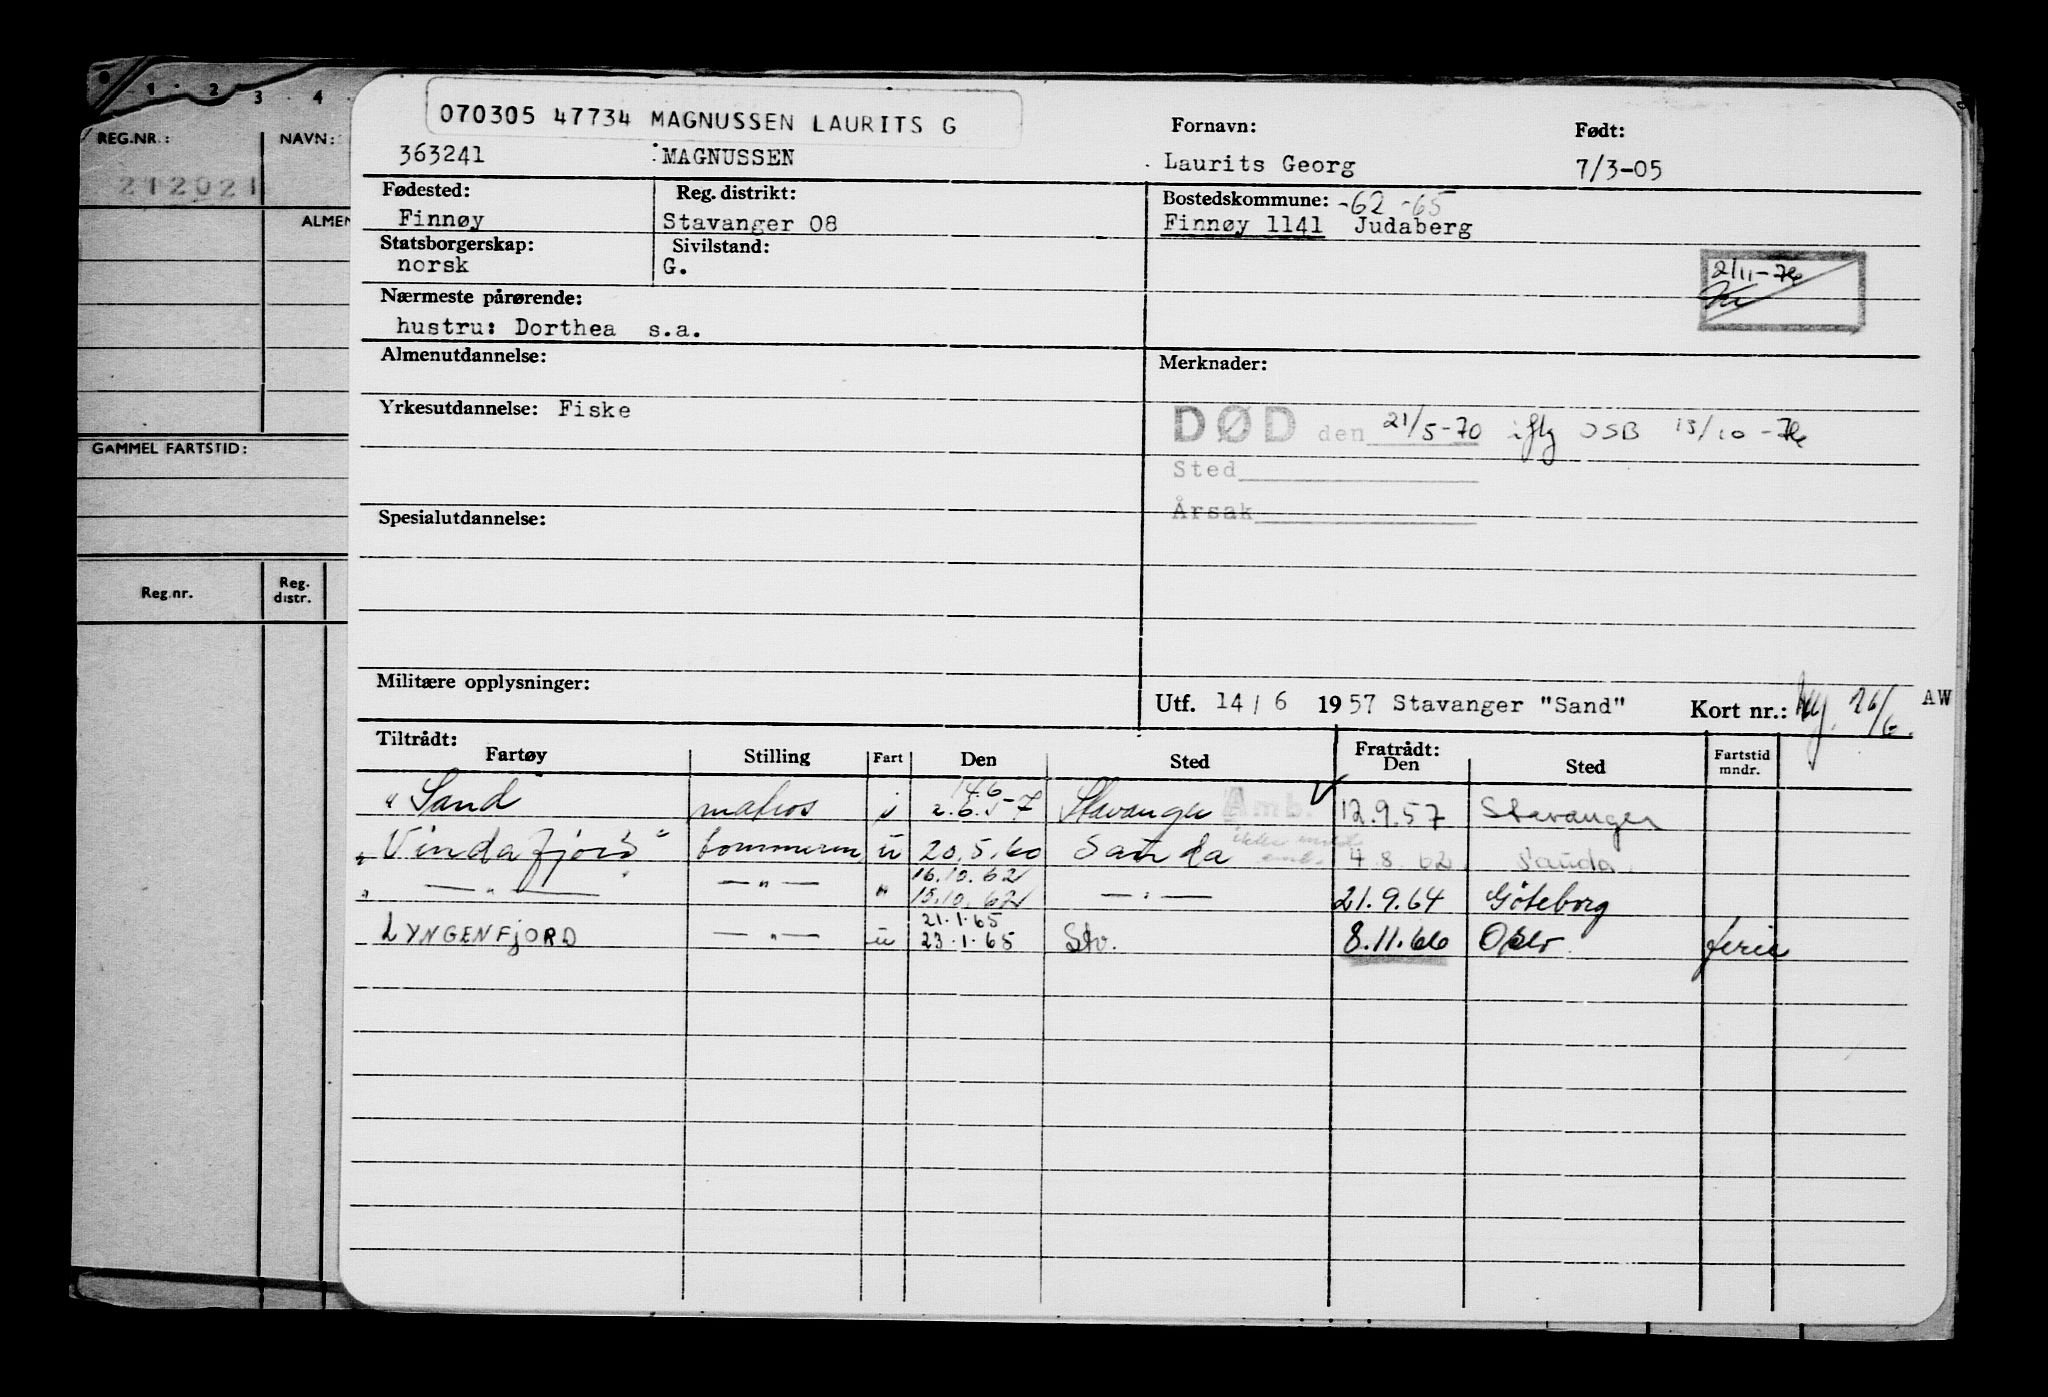 1 · 2 3 · 4 ·
REG.NR.: NAVN:
212021
ALMEN
GAMMEL FARTSTID:
Reg.nr. Reg. distr.
070305 47734 MAGNUSSEN LAURITS G
Fornavn: Født:
363241 MAGNUSSEN Laurits Georg 7/3-05
Fødested: Reg. distrikt: Bostedskommune: -62 -65
Finnøy Stavanger 08 Finnøy 1141 Judaberg
Statsborgerskap: Sivilstand:
norsk G.
2/11-76
Nærmeste pårørende:
hustru: Dorthea s.a.
Almenutdannelse: Merknader:
Yrkesutdannelse: Fiske
DØD den 21/5-70 iflg OSB 13/10-76
Sted
Årsak
Spesialutdannelse:
Militære opplysninger:
Utf. 14/6 1957 Stavanger "Sand" Kort nr.: 26/6. AW
Tiltrådt: Fratrådt:
Fartøy Stilling Fart Den Sted Den Sted Fartstid mndr.
14.6
"Sand matros i 2.6.57 Stavanger Amb. 12.9.57 Stavanger
"Vindafjord" tømmerm u 20.5.60 Sauda ikke med amb. 4.8.62 Sauda
16.10.62
" — " — — " — " 15.10.62 — " — 21.9.64 Göteborg
21.1.65
LYNGENFJORD — " — u 23.1.65 Stv. 8.11.66 Oslo ferie